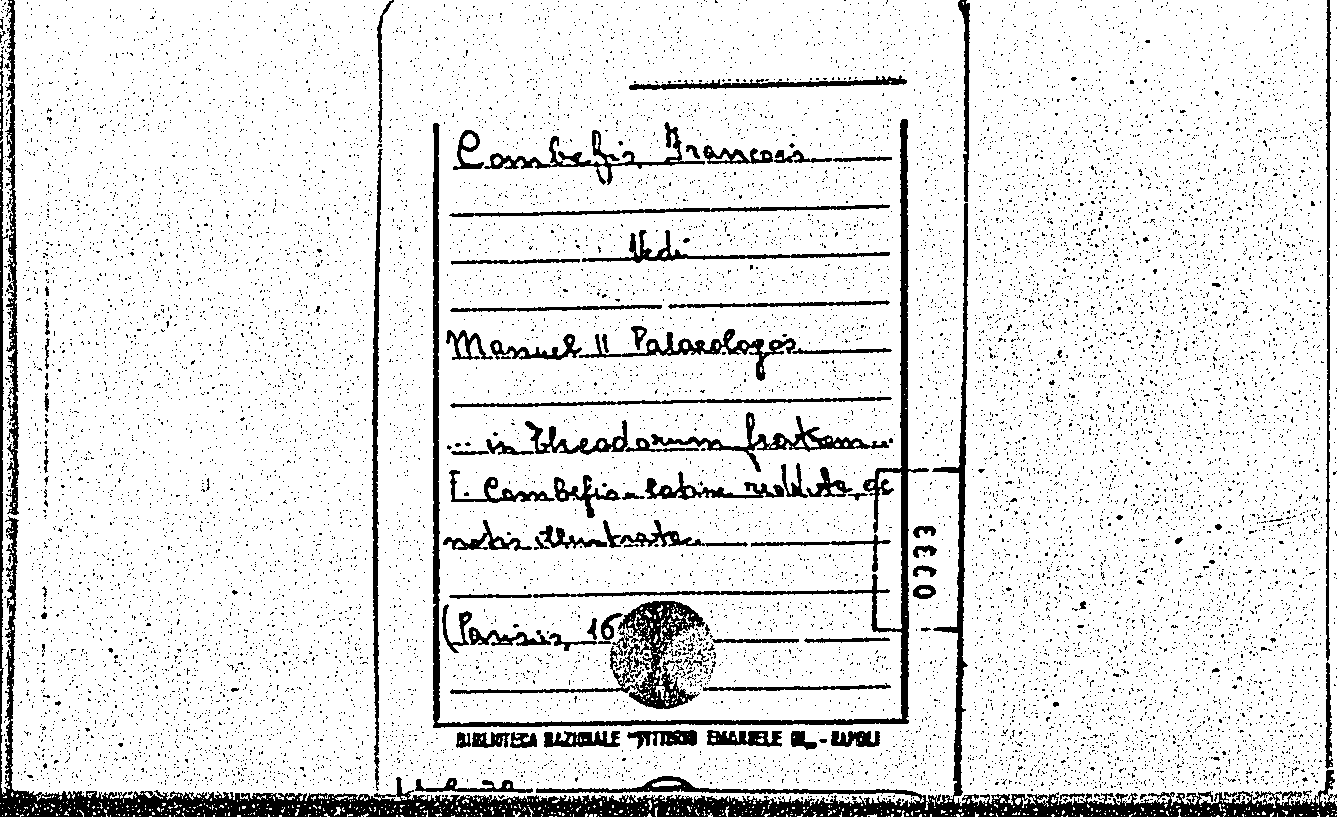 Combefis Francois
Vedi
Manuel II Palaeologos
... in Theodorum fratrem...
F. Combefis latine reddita, ac
notis illustrata.
(Parisiis, 16
0033
BIBLIOTECA NAZIONALE "VITTORIO EMANUELE III" - NAPOLI